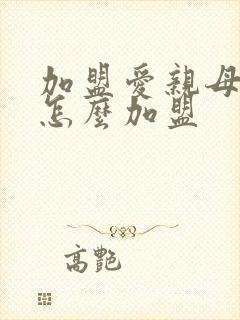 加盟愛親母
怎麼加盟
高艷